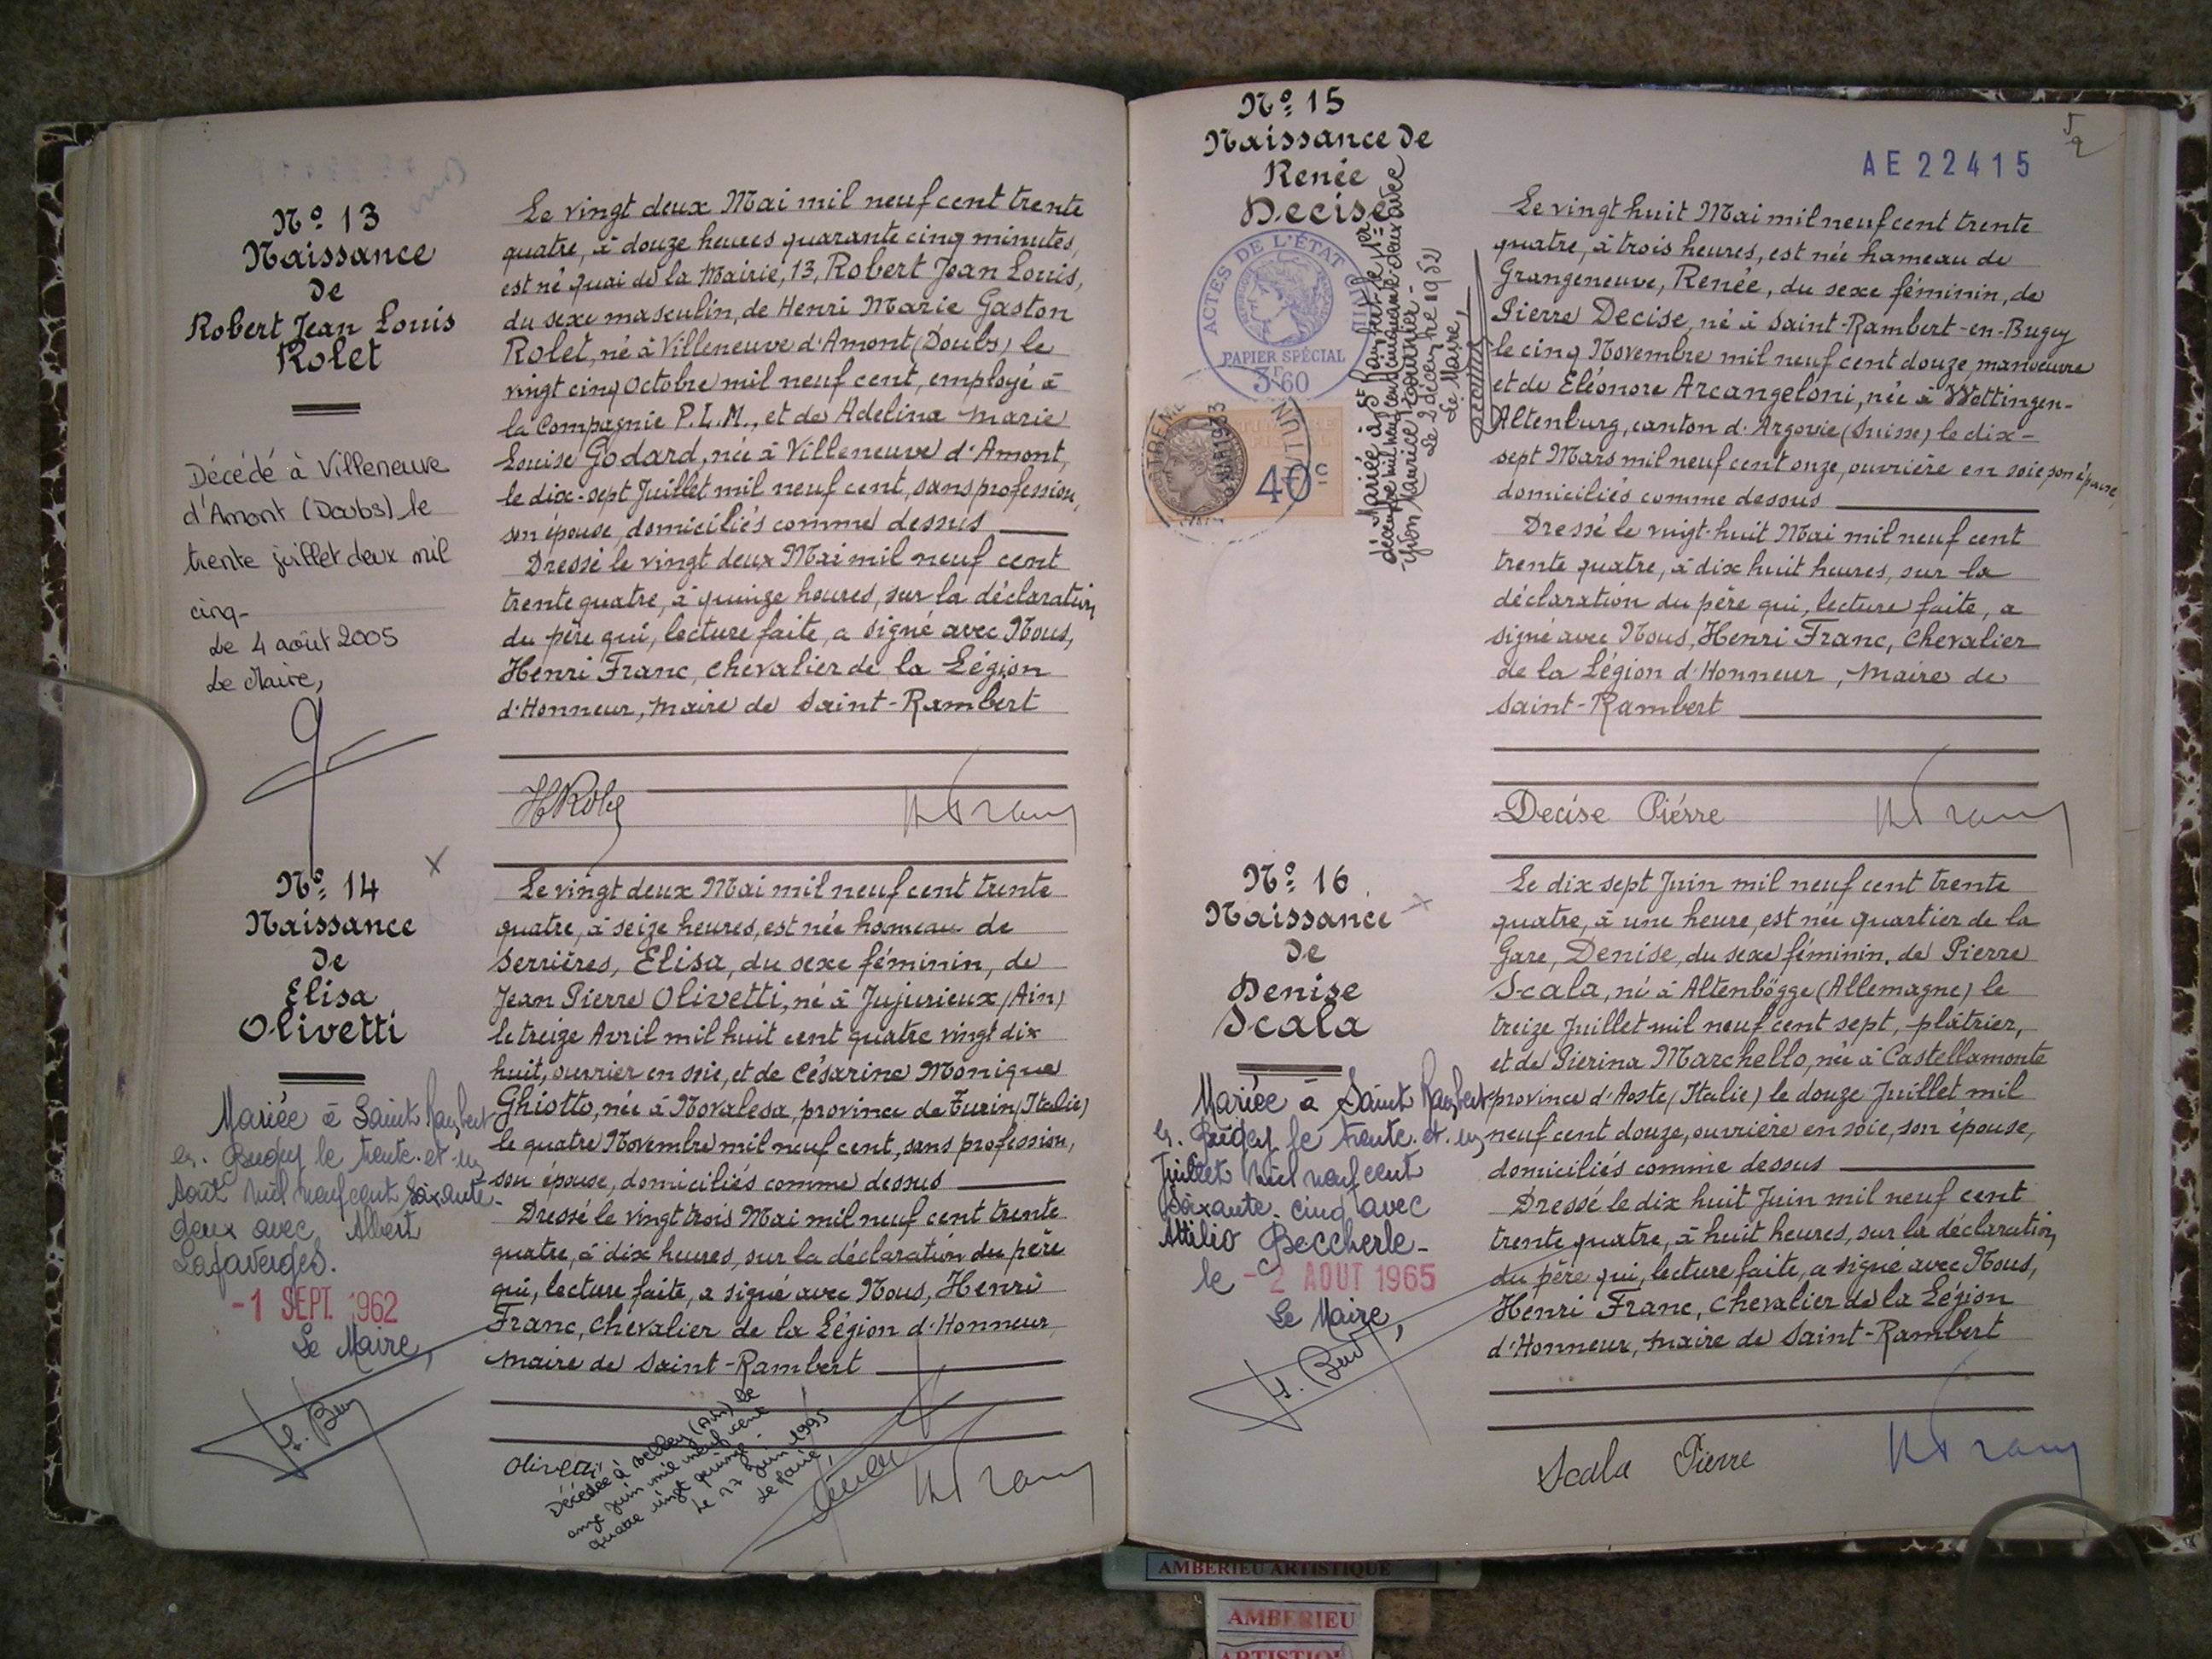 Nº 13
Naissance
de
Robert Jean Louis
Rolet
Décédé à Villeneuve
d'Amont (Doubs) le
trente juillet deux mil
cinq-
Le 4 août 2005
Le Maire,
Le vingt deux Mai mil neuf cent trente
quatre, à douze heures quarante cinq minutes,
est né quai de la Mairie, 13, Robert Jean Louis,
du sexe masculin, de Henri Marie Gaston
Rolet, né à Villeneuve d'Amont (Doubs) le
vingt cinq Octobre mil neuf cent, employé à
la Compagnie P.L.M., et de Adelina Marie
Louise Godard, née à Villeneuve d'Amont,
le dix-sept Juillet mil neuf cent, sans profession,
son épouse, domiciliés comme dessus
Dressé le vingt deux Mai mil neuf cent
trente quatre, à quinze heures, sur la déclaration
du père qui, lecture faite, a signé avec Nous,
Henri Franc, Chevalier de la Légion
d'Honneur, Maire de Saint-Rambert
Nº 14
Naissance
de
Elisa
Olivetti
Mariée à Saint Rambert
en Bugey le trente-et-un
Août mil neuf cent soixante-
deux avec Albert
Lafaverges.
-1 SEPT. 1962
Le Maire,
Le vingt deux Mai mil neuf cent trente
quatre, à seize heures, est née hameau de
Serrières, Elisa, du sexe féminin, de
Jean Pierre Olivetti, né à Jujurieux (Ain)
le treize Avril mil huit cent quatre vingt dix
huit, ouvrier en soie, et de Césarine Monique
Ghiotto, née à Novalesa, province de Turin (Italie)
le quatre Novembre mil neuf cent, sans profession,
son épouse, domiciliés comme dessus
Dressé le vingt trois Mai mil neuf cent trente
quatre, à dix heures, sur la déclaration du père
qui, lecture faite, a signé avec Nous, Henri
Franc, Chevalier de la Légion d'Honneur
Maire de Saint-Rambert
Olivetti
Décédée à Belley (Ain) le
onze juin mil neuf cent
quatre vingt quinze-
Le 27 juin 1995
Le Maire,
Nº 15
Naissance de
Renée
Decise
ACTES DE L'ÉTAT CIVIL
PAPIER SPÉCIAL
3f60
40c
Mariée à St Rambert le 1er
décembre mil neuf cent cinquante deux avec
Yvon Maurice
Le 2 décembre 1952
Le Maire,
AE22415
Le vingt huit Mai mil neuf cent trente
quatre, à trois heures, est née hameau de
Grangeneuve, Renée, du sexe féminin, de
Pierre Decise, né à Saint-Rambert-en-Bugey
le cinq Novembre mil neuf cent douze, manœuvre
et de Eléonore Arcangeloni, née à Wettingen-
Altenburg, canton d'Argovie (Suisse) le dix-
sept Mars mil neuf cent onze, ouvrière en soie, son épouse,
domiciliés comme dessus
Dressé le vingt-huit Mai mil neuf cent
trente quatre, à dix huit heures, sur la
déclaration du père qui, lecture faite, a
signé avec Nous, Henri Franc, Chevalier
de la Légion d'Honneur, Maire de
Saint-Rambert
Decise Pierre
Nº 16
Naissance
de
Denise
Scala
Mariée à Saint Rambert
en Bugey le trente-et-un
Juillet mil neuf cent
soixante-cinq avec
Attilio Beccherle-
le -2 AOUT 1965
Le Maire,
Le dix sept Juin mil neuf cent trente
quatre, à une heure, est née quartier de la
Gare, Denise, du sexe féminin, de Pierre
Scala, né à Altenbögge (Allemagne) le
treize Juillet mil neuf cent sept, plâtrier,
et de Pierina Marchello, née à Castellamonte
province d'Aoste (Italie) le douze Juillet mil
neuf cent douze, ouvrière en soie, son épouse,
domiciliés comme dessus
Dressé le dix huit Juin mil neuf cent
trente quatre, à huit heures, sur la déclaration
du père qui, lecture faite, a signé avec Nous,
Henri Franc, Chevalier de la Légion
d'Honneur, Maire de Saint-Rambert
Scala Pierre
AMBERIEU ARTISTIQUE
AMBERIEU
ARTISTIQU